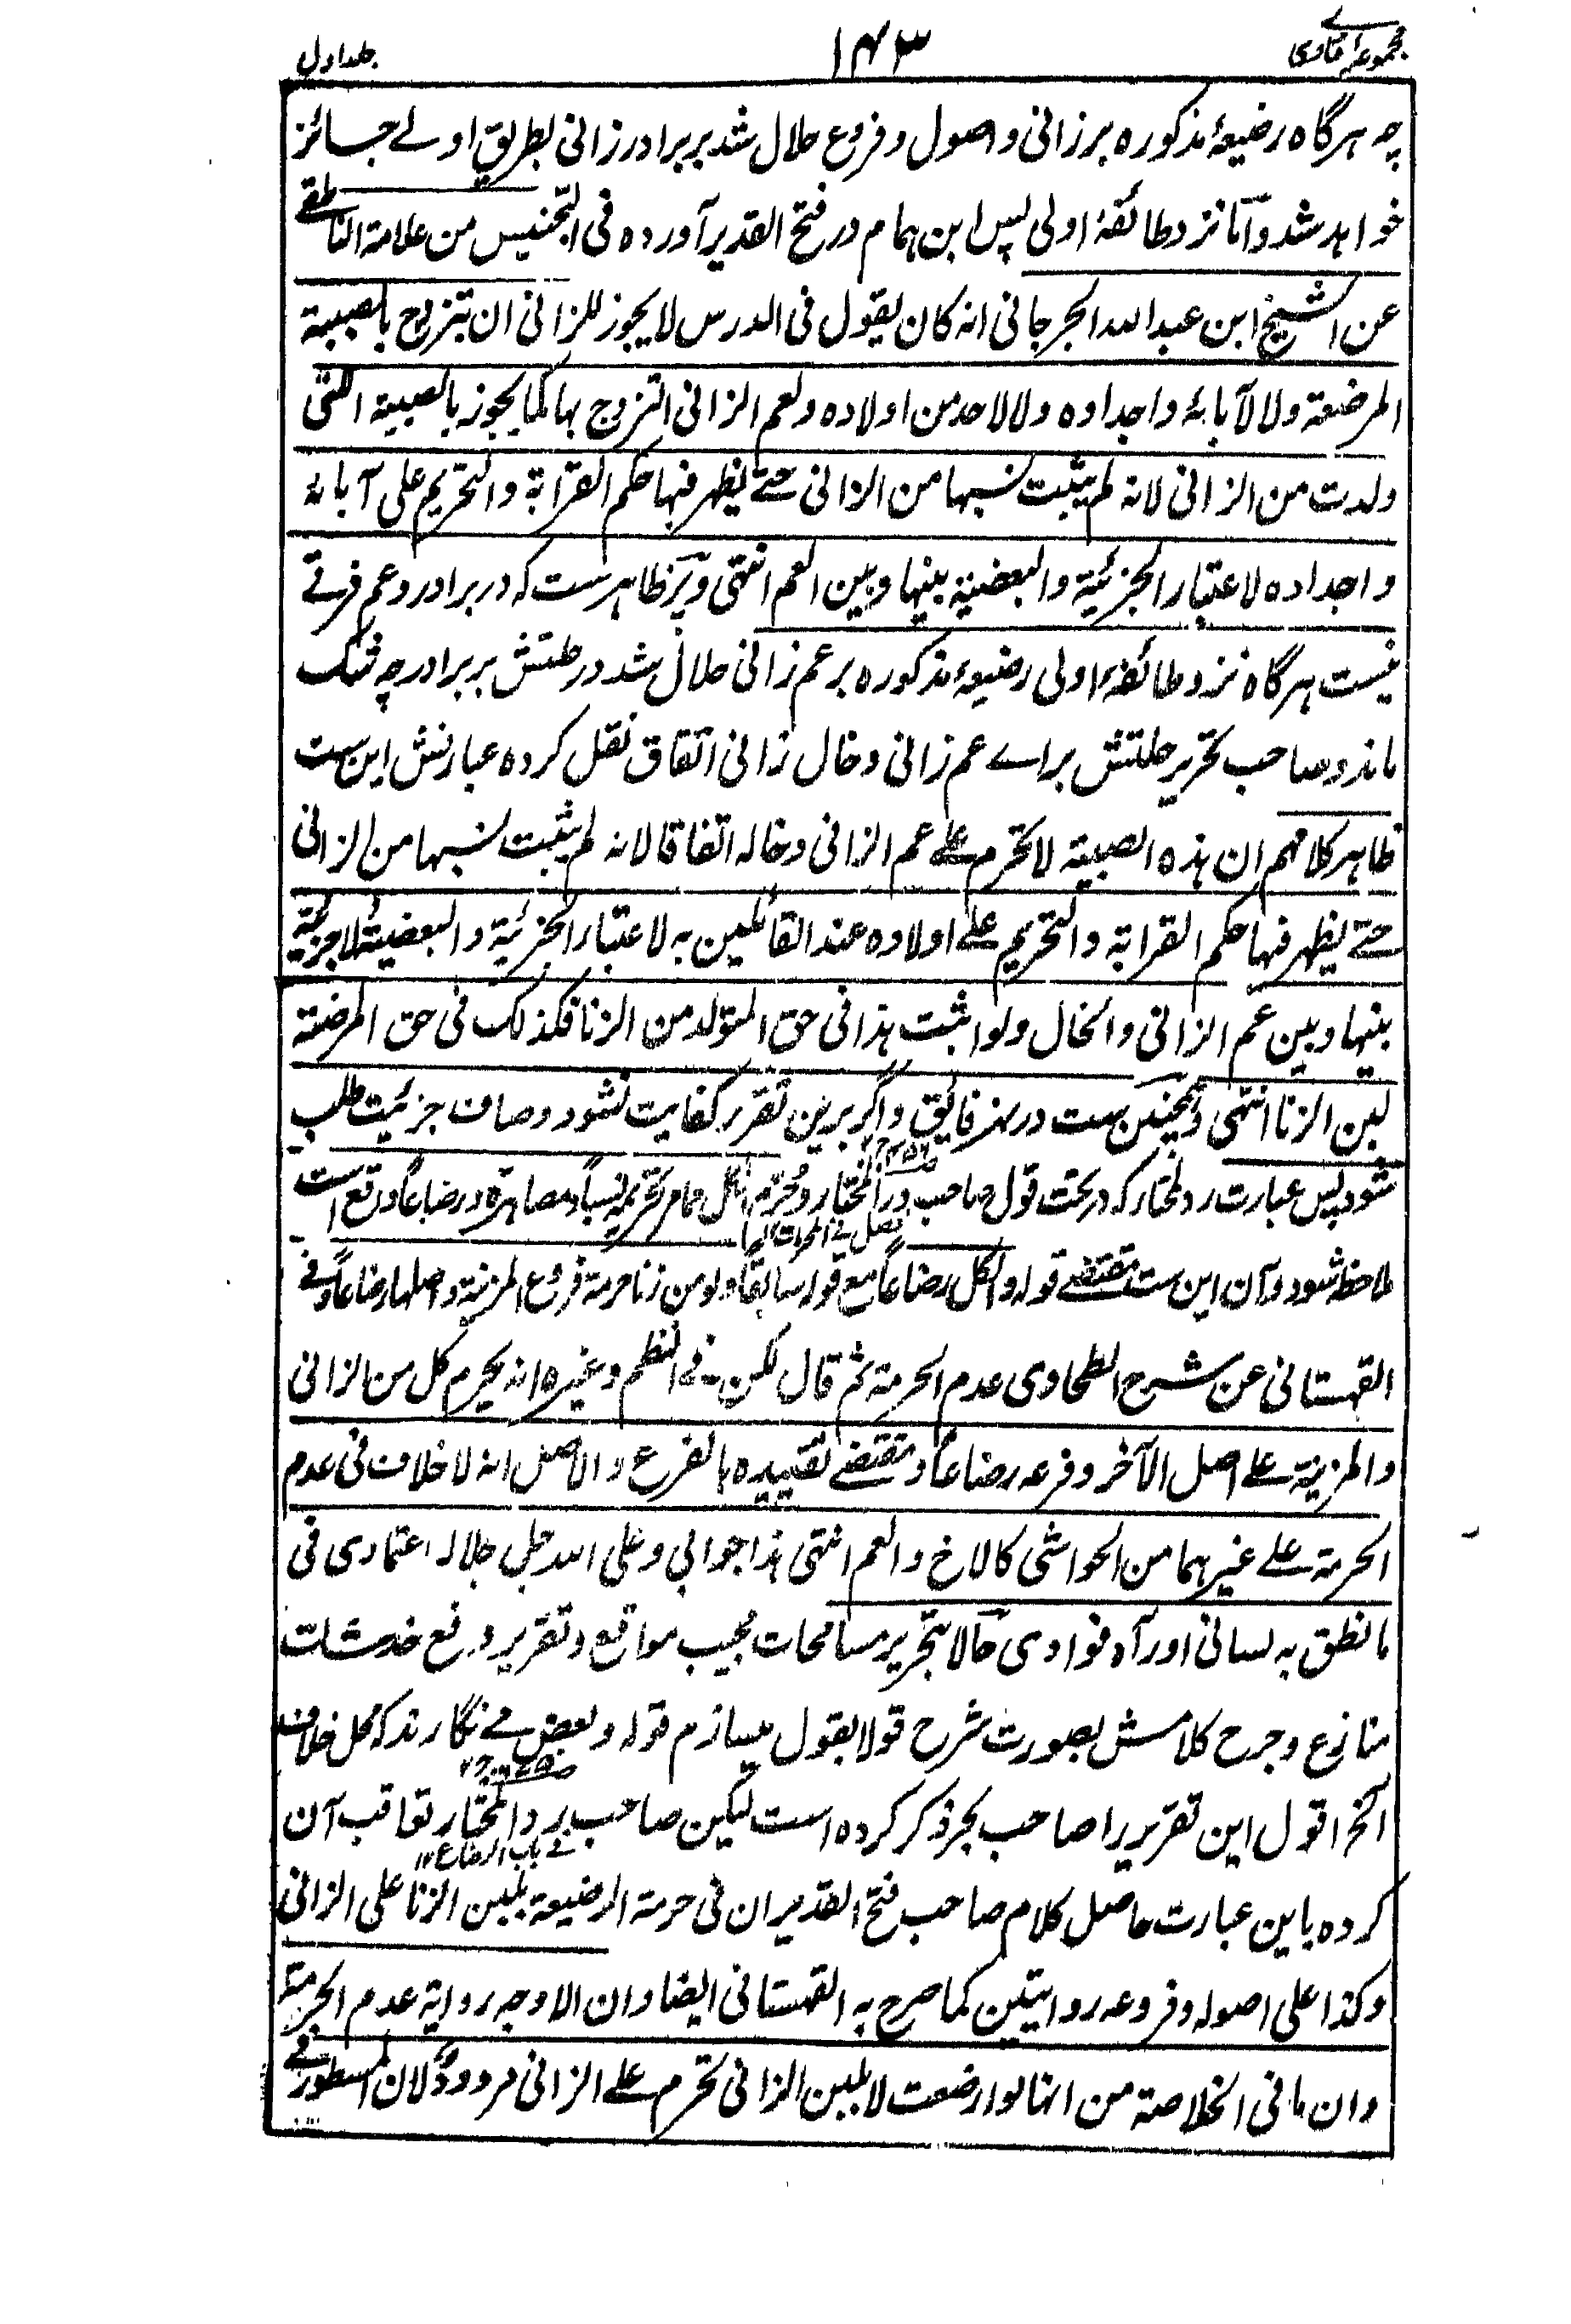 مجموعۂ فتاوی ۱۴۳ جلد اول
چہ ہرگاہ رضیعۂ مذکورہ برزانی واصول وفروع حلال شد بر برادر زانی بطریق اولے جائز
خواہد شد وأما نزد طائفۂ اولی پس ابن ہمام در فتح القدیر آوردہ فی التجنیس من علامة الناطفے
عن الشیخ ابن عبد اللہ الجرجانی انہ کان یقول فی الدرس لا یجوز للزانی ان یتزوج بالصبیة
المرضعة ولا لآبائہ واجدادہ ولا لاحد من اولادہ ولعم الزانی التزوج بہا کما یجوز بالصبیة التی
ولدت من الزانی لانہ لم یثبت نسبہا من الزانی حتے یظہر فیہا حکم القرابة والتحریم علی آبائہ
واجدادہ لاعتبار الجزئیة والبعضیة بینہا وبین العم انتہی وپر ظاہرست کہ در برادر وعم فرقے
نیست ہرگاہ نزد طائفۂ اولی رضیعۂ مذکورہ بر عم زانی حلال شد در حلتش بر برادر چہ شک
ماند وصاحب تحریر حلتش براے عم زانی وخال زانی اتفاق نقل کردہ عبارتش این ست
ظاہر کلامہم ان ہذہ الصبیة لا تحرم علے عم الزانی وخالہ اتفاقا لانہ لم یثبت نسبہا من الزانی
حتے یظہر فیہا حکم القرابة والتحریم علے اولادہ عند القائلین بہ لاعتبار الجزئیة والبعضیة لا جزئیة
بینہا وبین عم الزانی والخال ولو اثبت ہذا فی حق المتولد من الزنا فکذلک فی حق المرضعة
لبن الزنا انتہی وہمچنین ست در نہر فائق واگر برین تقریر کفایت نشود وصاف جزئیت طلب
شود پس عبارت رد المحتار کہ در تحت قول صاحب در المختار وحرم الکل مما مر تحریمہ نسباً ومصاہرة ورضاعاً واقع است
فصل فے المحرمات
ملاحظہ شود وآن این ست مقتضے قولہ والکل رضاعاً مع قولہ سابقاً ولو من زنا حرمة فروع المزنیة واصلہا رضاعاً وفے
القہستانی عن شرح الطحاوی عدم الحرمة ثم قال لکن فے النظم وغیرہ انہ یحرم کل من الزانی
والمزنیة علے اصل الآخر وفرعہ رضاعاً ومقتضے تقییدہ بالفرع والاصل انہ لا خلاف فی عدم
الحرمة علے غیرہما من الحواشی کالاخ والعم انتہی ہذا جوابی وعلی اللہ جل جلالہ اعتمادی فی
ما نطق بہ لسانی اورآہ فوادی حالا بتحریر مسامحات مجیب مواقع وتقریر دفع خدشات
منازع وجرح کلامش بصورت شرح قولا بقول میسازم قولہ وبعض مے نگارند کہ محل خلاف
الخ اقول این تقریر را صاحب بحر ذکر کردہ است لیکن صاحب رد المحتار تعاقب آن
فے باب الرضاع ۱۲
کردہ باین عبارت حاصل کلام صاحب فتح القدیر ان فی حرمة الرضیعة بلبن الزنا علی الزانی
وکذا علی اصولہ وفروعہ روایتین کما صرح بہ القہستانی ایضا وان الاوجہ روایة عدم الحرمة
وان ما فی الخلاصة من انہا لو ارضعت لا بلبن الزانی تحرم علے الزانی مردودٌ لان المسطور فے